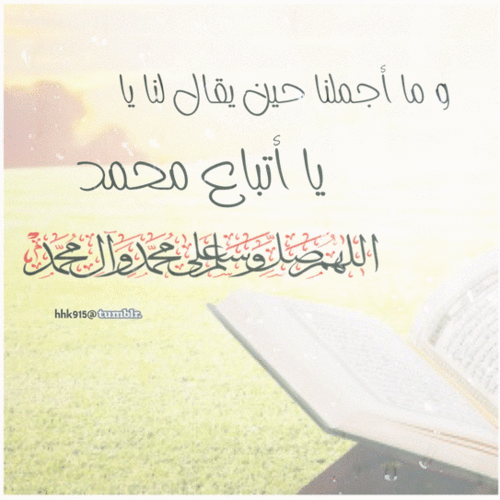 و ما أجملنا حين يقال لنا يا
يا أتباع محمد
اللهم صل وسلم على محمد وآل محمد
hhk915@tumblr.